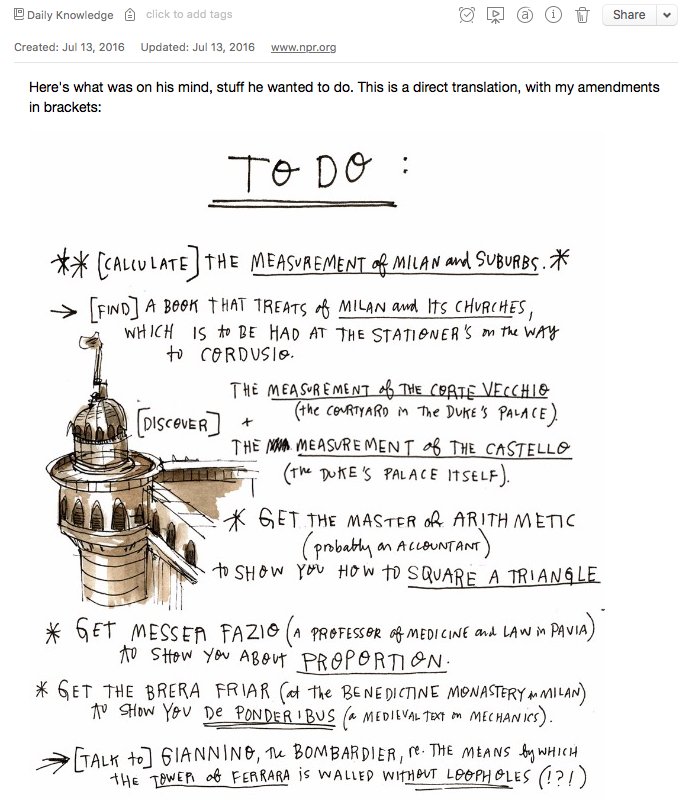 Daily Knowledge click to add tags Share
Created: Jul 13, 2016 Updated: Jul 13, 2016 www.npr.org
Here's what was on his mind, stuff he wanted to do. This is a direct translation, with my amendments
in brackets:
TO DO :
** [CALCULATE] THE MEASUREMENT of MILAN and SUBURBS. *
→ [FIND] A BOOK THAT TREATS of MILAN and ITS CHURCHES,
WHICH IS to BE HAD AT THE STATIONER'S on the WAY
to CORDUSIO.
THE MEASUREMENT of THE CORTE VECCHIO
(the COURTYARD in The DUKE'S PALACE).
[DISCOVER] +
THE MEASUREMENT of THE CASTELLO
(THE DUKE'S PALACE ITSELF).
* GET THE MASTER of ARITHMETIC
(probably an ACCOUNTANT)
to SHOW YOU HOW TO SQUARE A TRIANGLE
* GET MESSER FAZIO (A PROFESSOR of MEDICINE and LAW in PAVIA)
to SHOW YOU ABOUT PROPORTION.
* GET THE BRERA FRIAR (at the BENEDICTINE MONASTERY in MILAN)
to SHOW YOU De PONDERIBUS (a MEDIEVAL TEXT on MECHANICS).
→ [TALK to] GIANNINO, The BOMBARDIER, re. THE MEANS by WHICH
THE TOWER of FERRARA is WALLED WITHOUT LOOPHOLES (!?!)